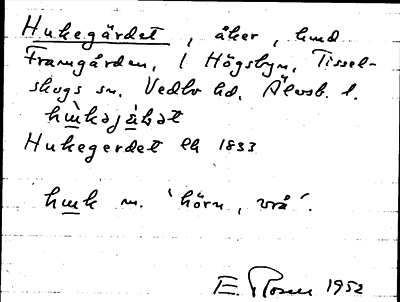 Hukegärdet, åker, und
Framgården, 1 Högsbyn, Tissel-
skogs sn. Vedbo hd. Älvsb. l.
Hukegerdet lh 1833
huk m. 'hörn, vrå'.
E. Rosen 1952